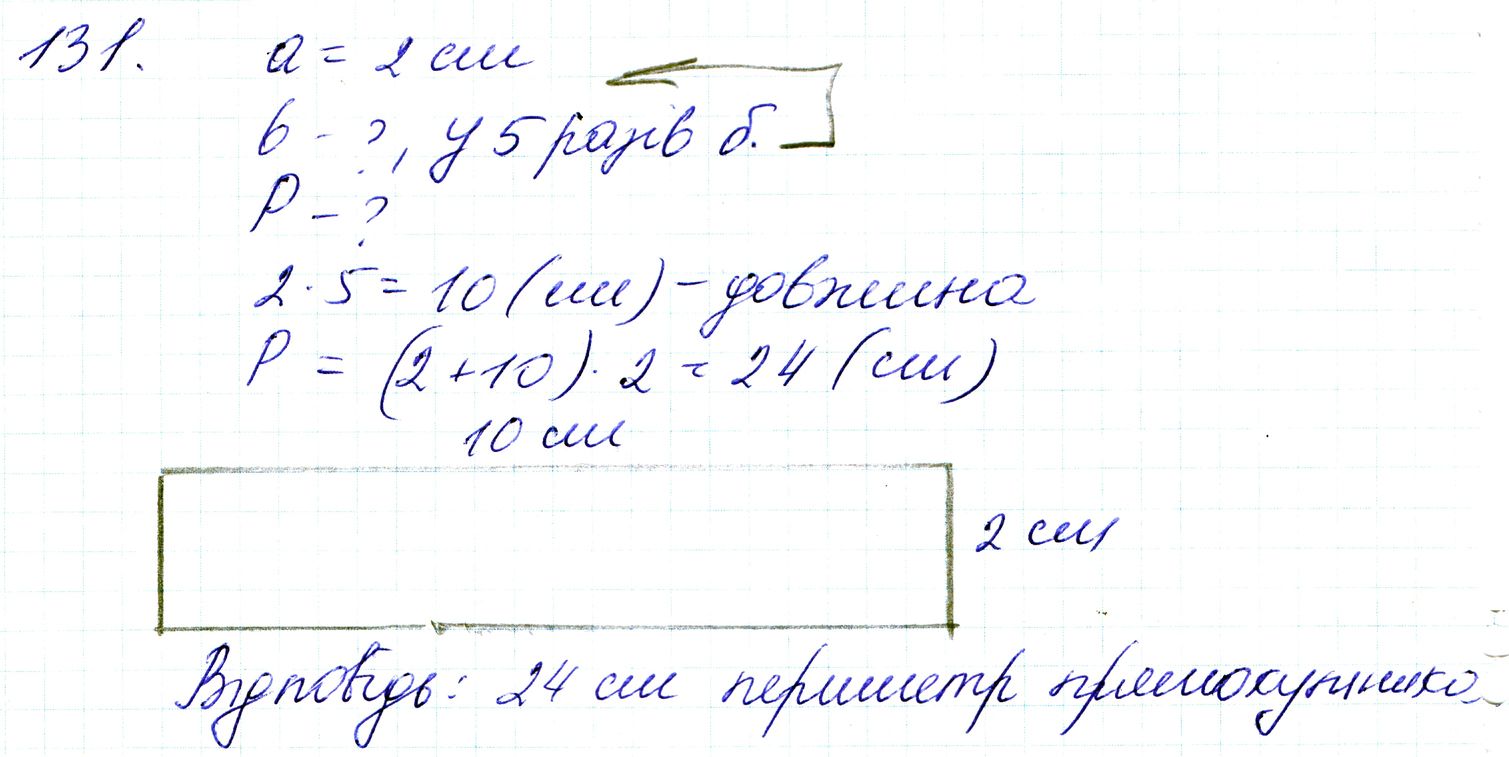 131. a = 2 см
b - ?, у 5 разів б.
P - ?
2 · 5 = 10 (см) - довжина
P = (2 + 10) · 2 = 24 (см)
10 см
2 см
Відповідь: 24 см периметр прямокутника